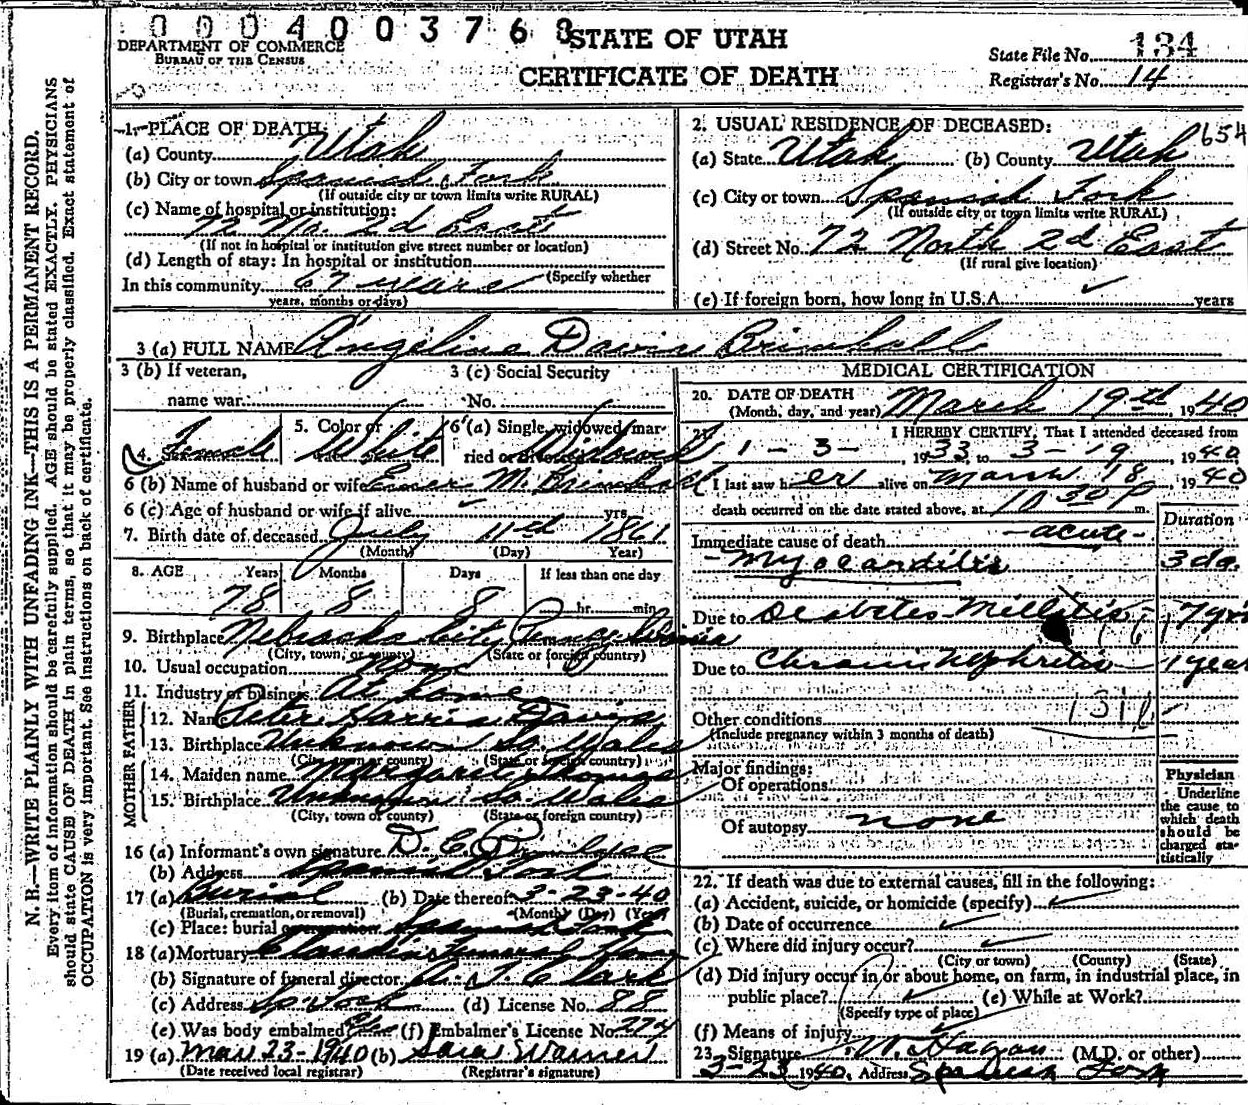 0004003768
STATE OF UTAH
DEPARTMENT OF COMMERCE
BUREAU OF THE CENSUS
CERTIFICATE OF DEATH
State File No. 134
Registrar's No. 14
N. B.—WRITE PLAINLY WITH UNFADING INK—THIS IS A PERMANENT RECORD.
Every item of information should be carefully supplied. AGE should be stated EXACTLY. PHYSICIANS
should state CAUSE OF DEATH in plain terms, so that it may be properly classified. Exact statement of
OCCUPATION is very important. See instructions on back of certificate.
1. PLACE OF DEATH:
(a) County Utah
(b) City or town Spanish Fork
(If outside city or town limits write RURAL)
(c) Name of hospital or institution:
72 No. 2d East
(If not in hospital or institution give street number or location)
(d) Length of stay: In hospital or institution
(Specify whether
In this community 67 years
years, months or days)
2. USUAL RESIDENCE OF DECEASED: 654
(a) State Utah (b) County Utah
(c) City or town Spanish Fork
(If outside city or town limits write RURAL)
(d) Street No. 72 North 2d East
(If rural give location)
(e) If foreign born, how long in U.S.A. years
3 (a) FULL NAME Angeline Davis Brimhall
3 (b) If veteran,
name war
3 (c) Social Security
No.
4. Female
5. Color or White
6 (a) Single, widowed, mar-
ried or Widowed
6 (b) Name of husband or wife M. Brimhall
6 (c) Age of husband or wife if alive yrs.
7. Birth date of deceased July 11 1861
(Month) (Day) Year)
8. AGE Years Months Days If less than one day
78 8 8 hr. min.
9. Birthplace Nebraska City
(City, town, or county) (State or foreign country)
10. Usual occupation
11. Industry or business At home
FATHER
12. Name Peter Harris Davis
13. Birthplace Unknown So. Wales
(City, town or county) (State or foreign country)
MOTHER
14. Maiden name Margaret Thomas
15. Birthplace Unknown So. Wales
(City, town or county) (State or foreign country)
16 (a) Informant's own signature D. E. Brimhall
(b) Address Spanish Fork
17 (a) Burial (b) Date thereof 3-23-40
(Burial, cremation, or removal) (Month) (Day) (Year)
(c) Place: burial Spanish Fork
18 (a) Mortuary Funeral Home
(b) Signature of funeral director Clark
(c) Address Sp. Fork (d) License No. 88
(e) Was body embalmed Yes (f) Embalmer's License No. 274
19 (a) Mar 23-1940 (b) Sarai Warner
(Date received local registrar) (Registrar's signature)
MEDICAL CERTIFICATION
20. DATE OF DEATH
(Month, day, and year) March 19th, 1940
21. I HEREBY CERTIFY, That I attended deceased from
1-3-, 1933, to 3-19, 1940
I last saw her alive on March 18, 1940
death occurred on the date stated above, at 10 30 P m.
Duration
Immediate cause of death -acute-
-Myocarditis 3 da.
Due to Diabetes Millitis 61 7 yrs
Due to Chronic Nephritis 1 year
131
Other conditions
(Include pregnancy within 3 months of death)
Major findings:
Of operations
Of autopsy none
Physician
Underline
the cause to
which death
should be
charged sta-
tistically
22. If death was due to external causes, fill in the following:
(a) Accident, suicide, or homicide (specify)
(b) Date of occurrence
(c) Where did injury occur?
(City or town) (County) (State)
(d) Did injury occur in or about home, on farm, in industrial place, in
public place? (e) While at Work?
(Specify type of place)
(f) Means of injury
23. Signature Hagan (M.D. or other)
3-23 1940, Address Spanish Fork